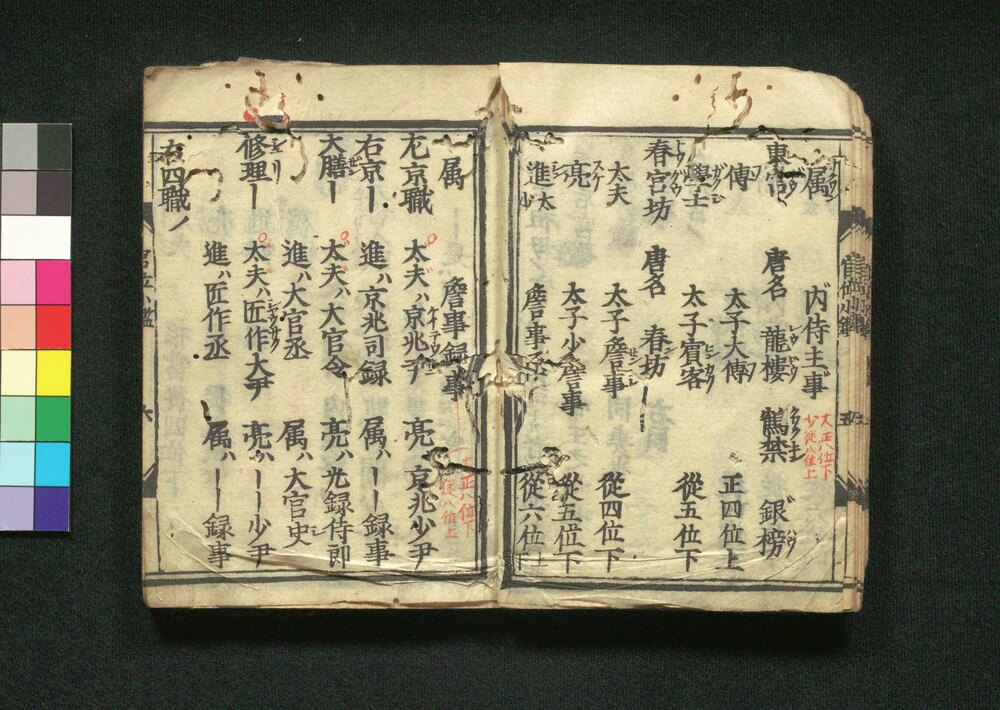 属 内侍主事
大正八位下
少従八位上
東宮 唐名 龍樓 鶴禁 銀榜
傅 太子大傅 正四位上
學士 太子賓客 従五位下
春宮坊 唐名 春坊
太夫 太子詹事 従四位下
亮 太子少詹事 従五位下
進 大少 詹事丞 従六位
属 詹事録事
大正八位下
従八位上
左京職 太夫ハ京兆尹 亮 京兆少尹
右京ー 進ハ京兆司録 属ハーー録事
大膳ー 太夫ハ大官令 亮ハ光録侍郎
進ハ大官丞 属ハ大官史
修理ー 太夫ハ匠作大尹 亮ハーー少尹
進ハ匠作丞 属ハーー録事
右四職ノ